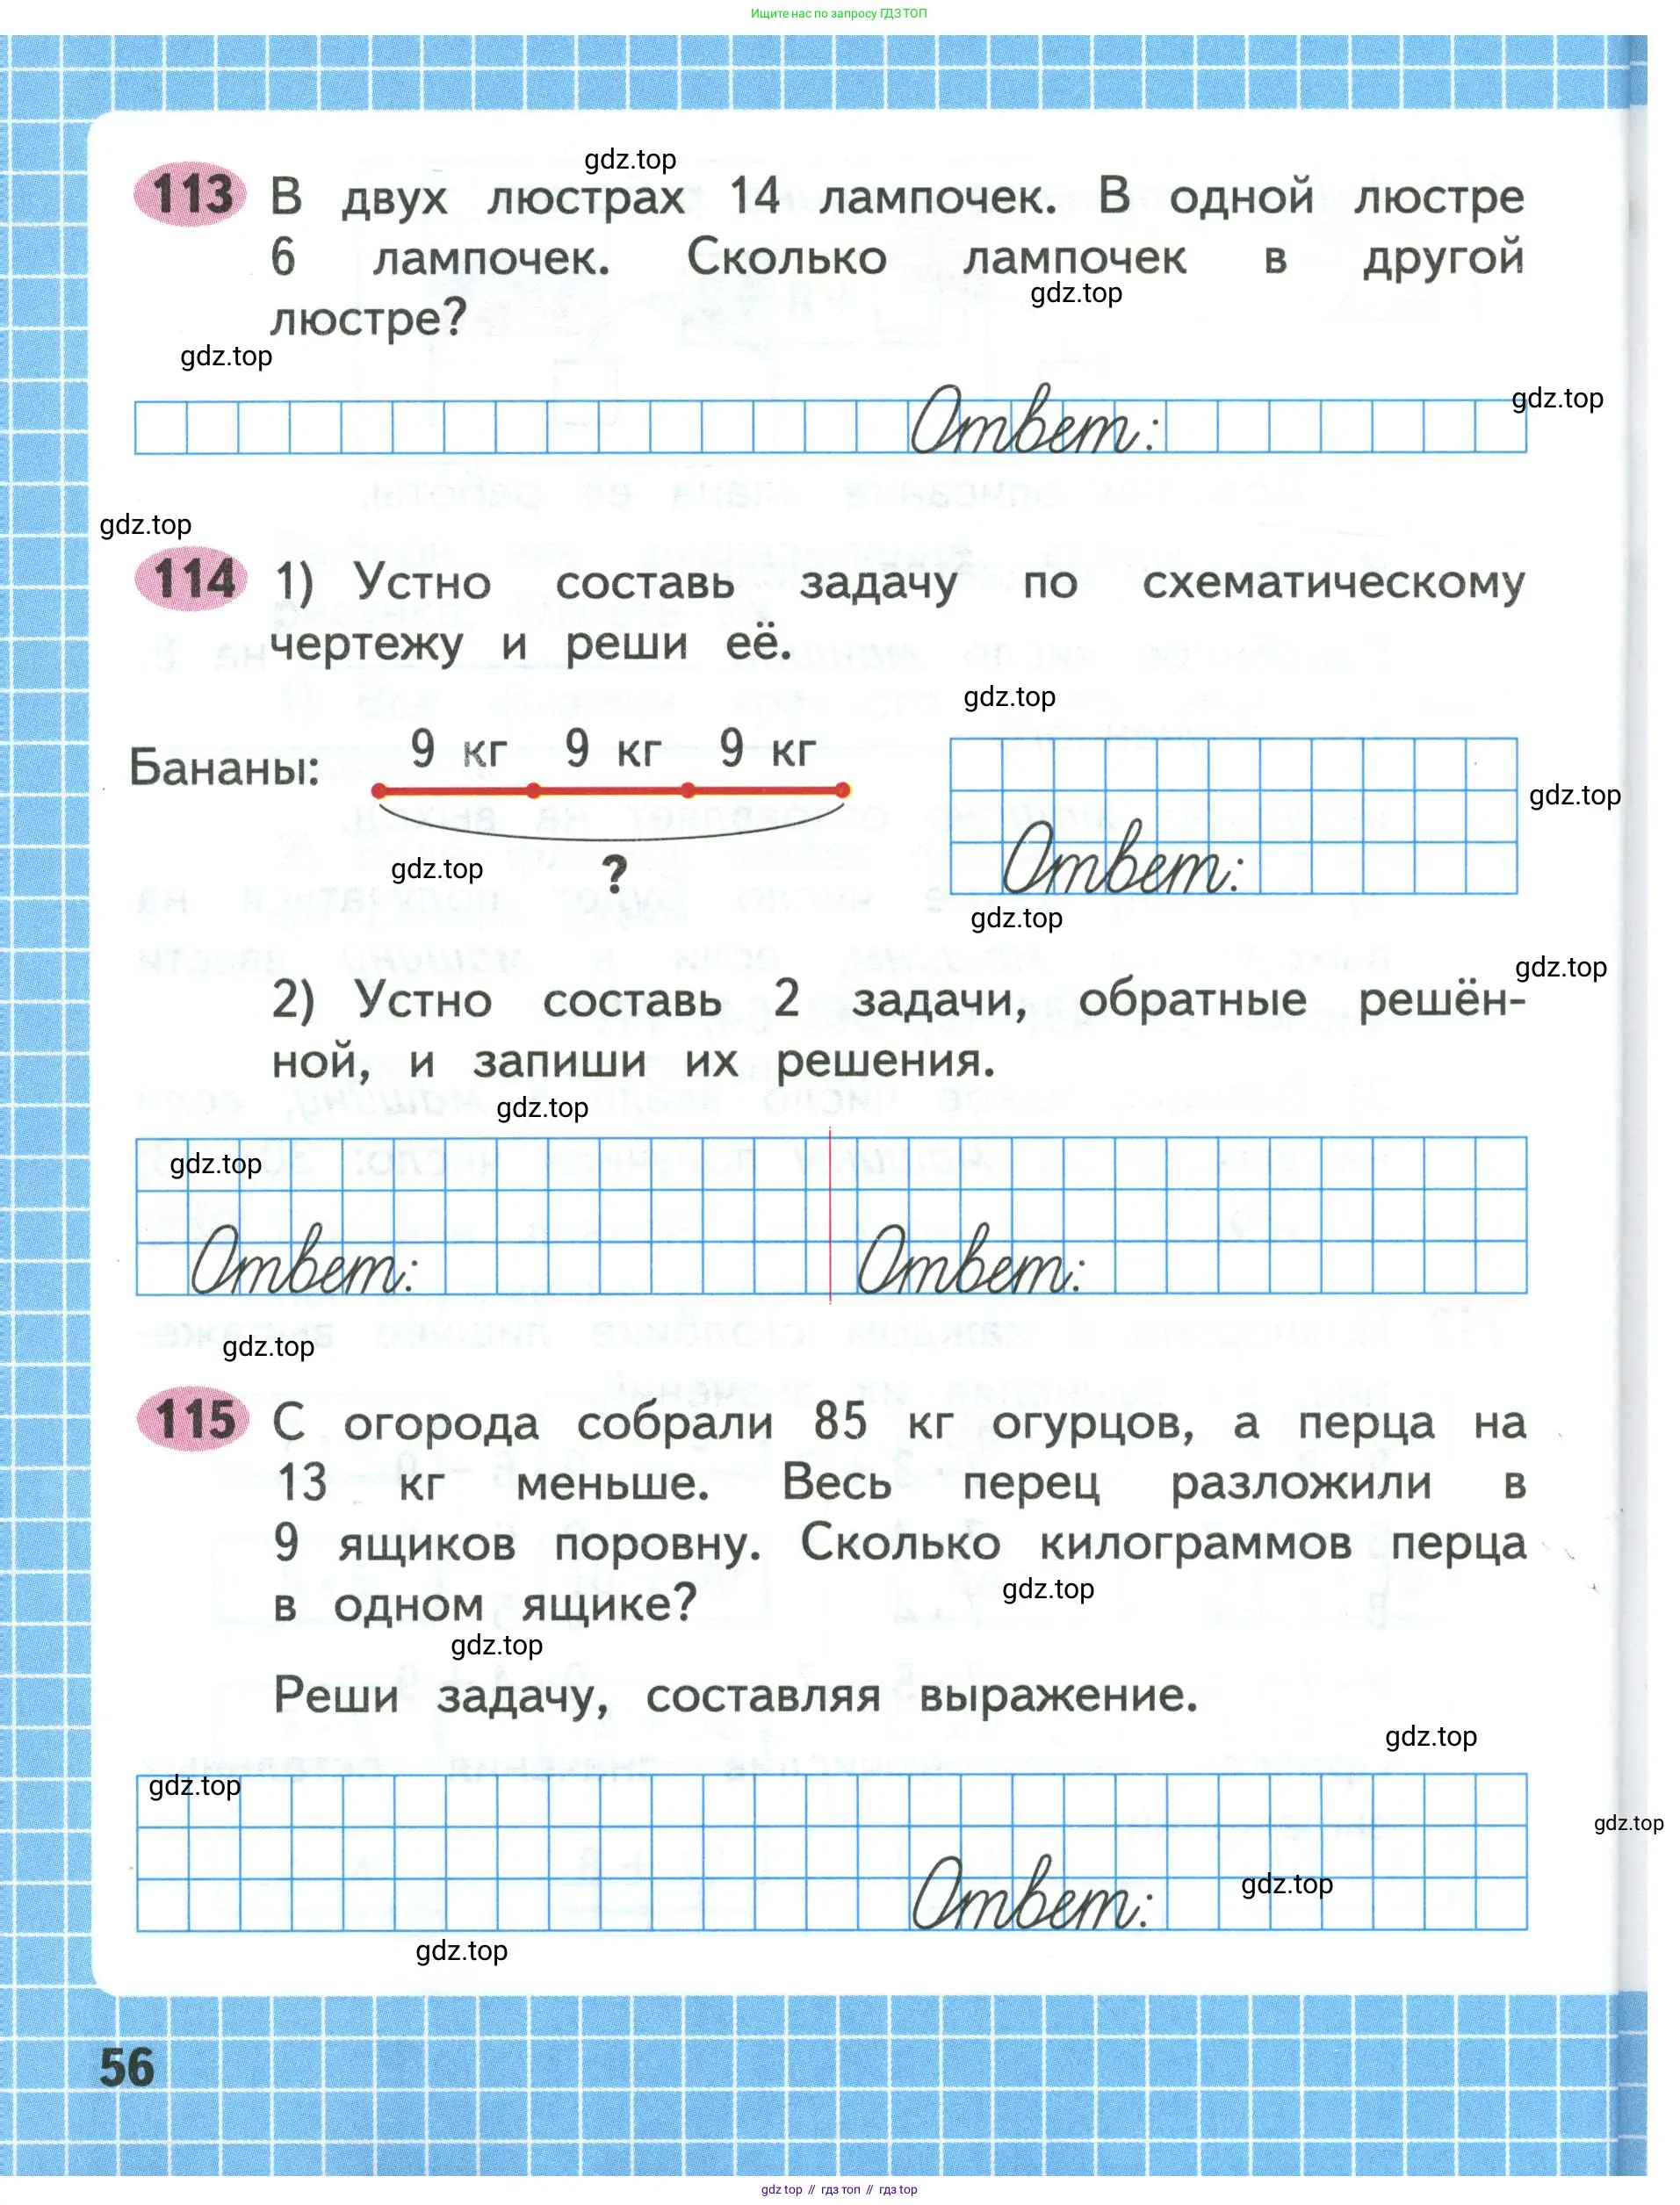 Ищите нас по запросу ГДЗ ТОП
gdz.top
113 В двух люстрах 14 лампочек. В одной люстре
6 лампочек. Сколько лампочек в другой
gdz.top
люстре?
gdz.top
gdz.top
Ответ:
gdz.top
114 1) Устно составь задачу по схематическому
чертежу и реши её.
gdz.top
9 кг 9 кг 9 кг
Бананы:
gdz.top
gdz.top
?
Ответ:
gdz.top
gdz.top
2) Устно составь 2 задачи, обратные решён-
ной, и запиши их решения.
gdz.top
gdz.top
Ответ: Ответ:
gdz.top
115 С огорода собрали 85 кг огурцов, а перца на
13 кг меньше. Весь перец разложили в
9 ящиков поровну. Сколько килограммов перца
gdz.top
в одном ящике?
gdz.top
Реши задачу, составляя выражение.
gdz.top
gdz.top
gdz.top
gdz.top
Ответ:
gdz.top
56
gdz top // гдз топ // гдз top